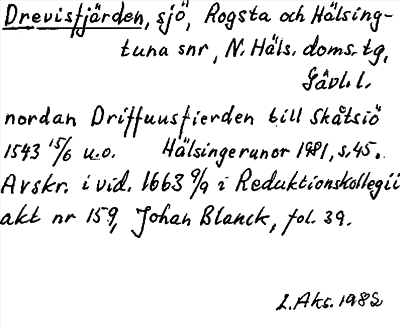 Drevisfjärden, sjö, Rogsta och Hälsing-
tuna snr, N. Häls. doms. tg,
Gävl. l.
nordan Driffuusfierden till Skåtsiö
1543 15/6 u.o. Hälsingerunor 1981, s.45.
Avskr. i vid. 1663 9/9 i Reduktionskollegii
akt nr 159, Johan Blanck, fol. 39.
L. Aks. 1982